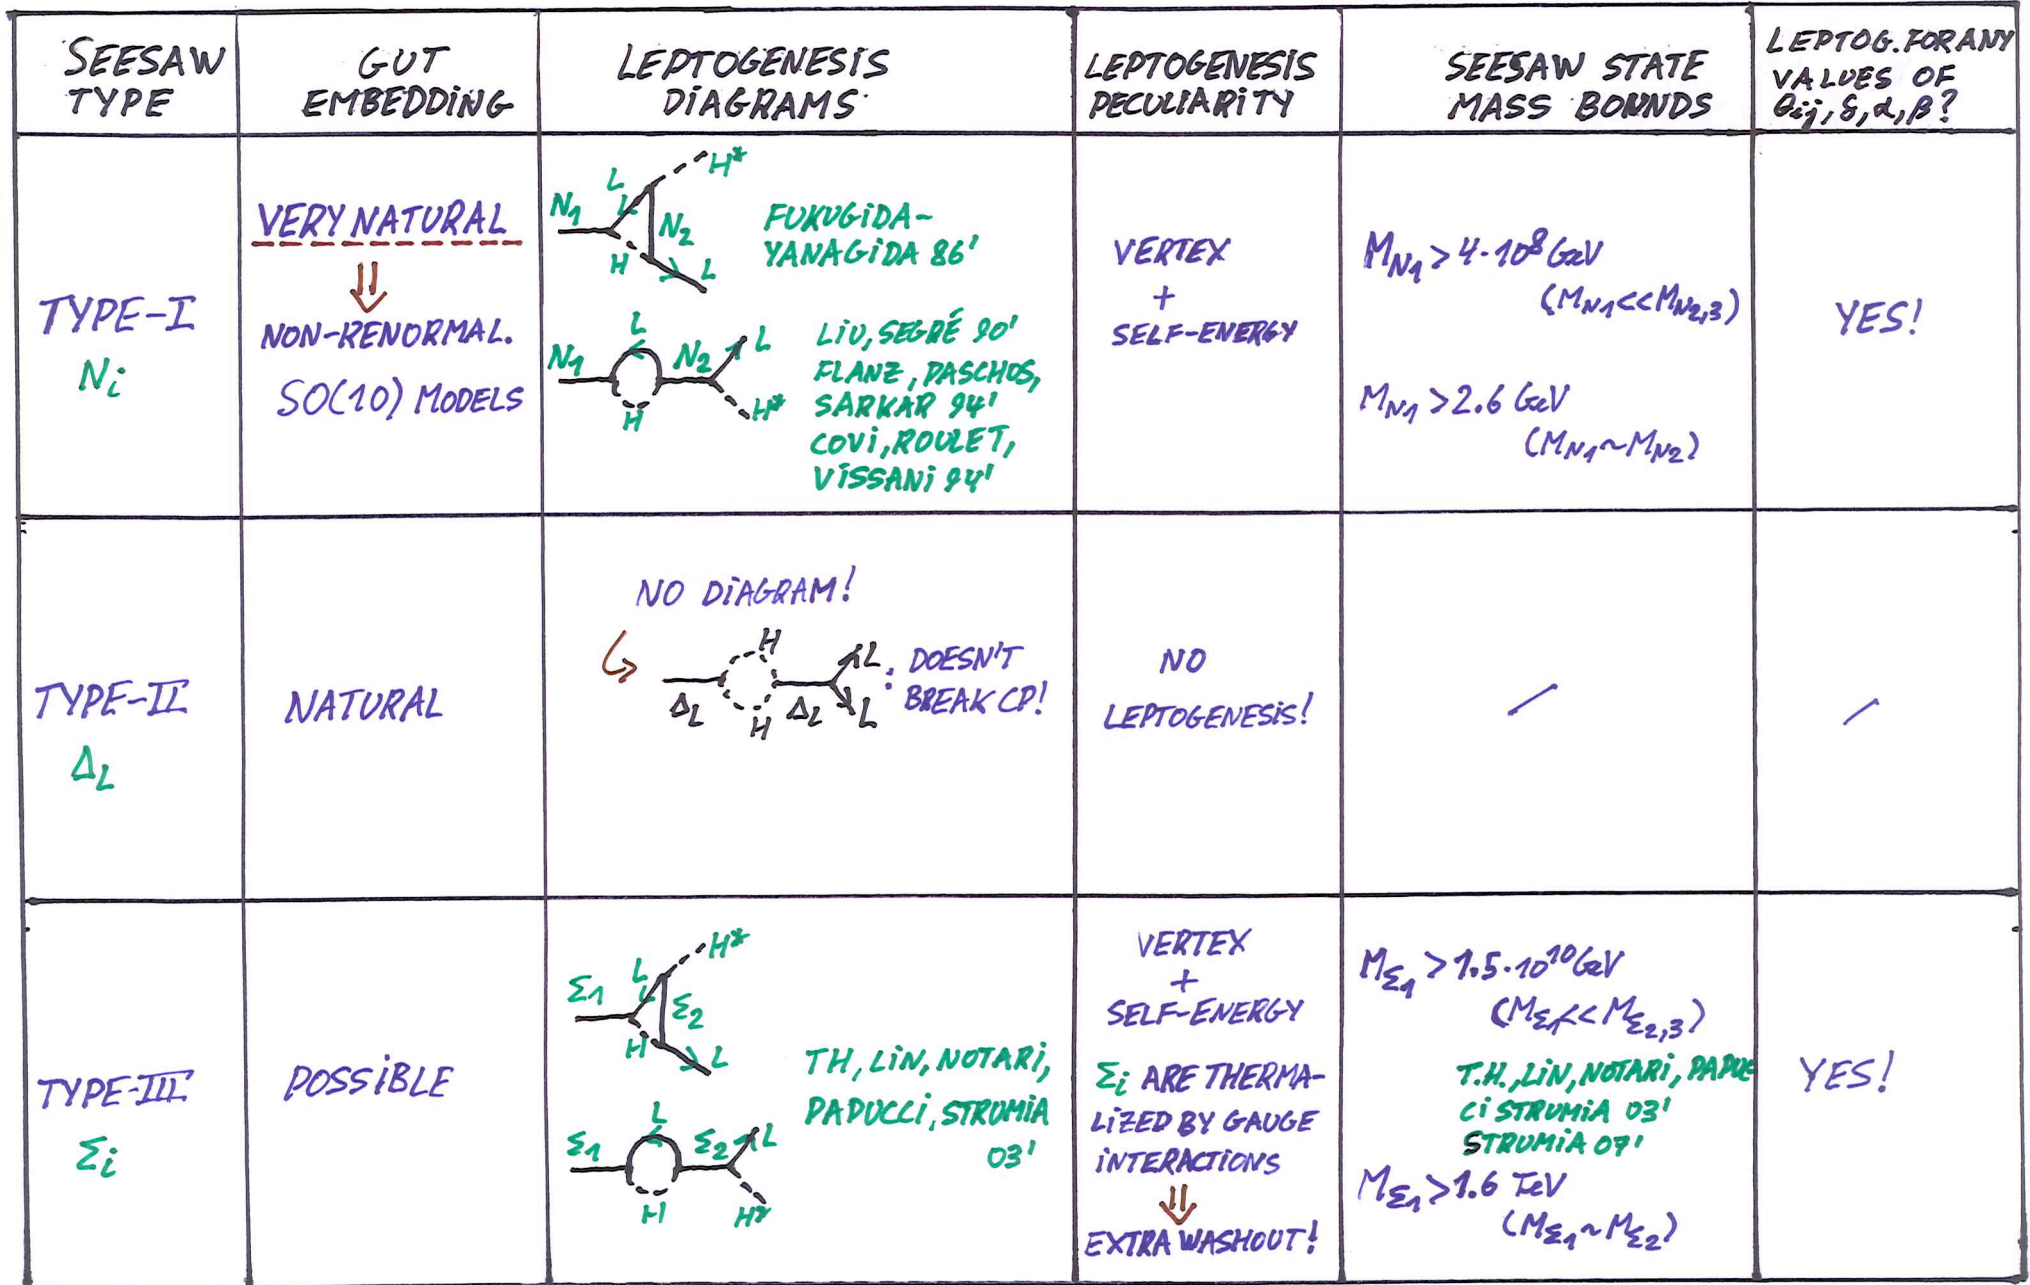 SEESAW
TYPE
GUT
EMBEDDING
LEPTOGENESIS
DIAGRAMS
LEPTOGENESIS
PECULIARITY
SEESAW STATE
MASS BONNDS
LEPTOG. FOR ANY
VALUES OF
θij, δ, α, β?
TYPE-I
Ni
VERY NATURAL
⇓
NON-RENORMAL.
SO(10) MODELS
N1
L
H*
N2
H
L
FUKUGIDA-
YANAGIDA 86'
N1
L
H
N2
L
H*
LIU, SEGRÉ 90'
FLANZ, PASCHOS,
SARKAR 94'
COVI, ROULET,
VISSANI 94'
VERTEX
+
SELF-ENERGY
MN1 > 4·10⁸ GeV
(MN1 << MN2,3)
MN1 > 2.6 GeV
(MN1 ~ MN2)
YES!
TYPE-II
ΔL
NATURAL
NO DIAGRAM!
ΔL
H
H
ΔL
L
L
: DOESN'T
BREAK CP!
NO
LEPTOGENESIS!
/
/
TYPE-III
Σi
POSSIBLE
Σ1
L
H*
Σ2
H
L
Σ1
L
H
Σ2
L
H*
TH, LIN, NOTARI,
PAPUCCI, STRUMIA
03'
VERTEX
+
SELF-ENERGY
Σi ARE THERMA-
LIZED BY GAUGE
INTERACTIONS
⇓
EXTRA WASHOUT!
MΣ1 > 1.5·10¹⁰ GeV
(MΣ1 << MΣ2,3)
T.H., LIN, NOTARI, PAPUC
CI STRUMIA 03'
STRUMIA 07'
MΣ1 > 1.6 TeV
(MΣ1 ~ MΣ2)
YES!